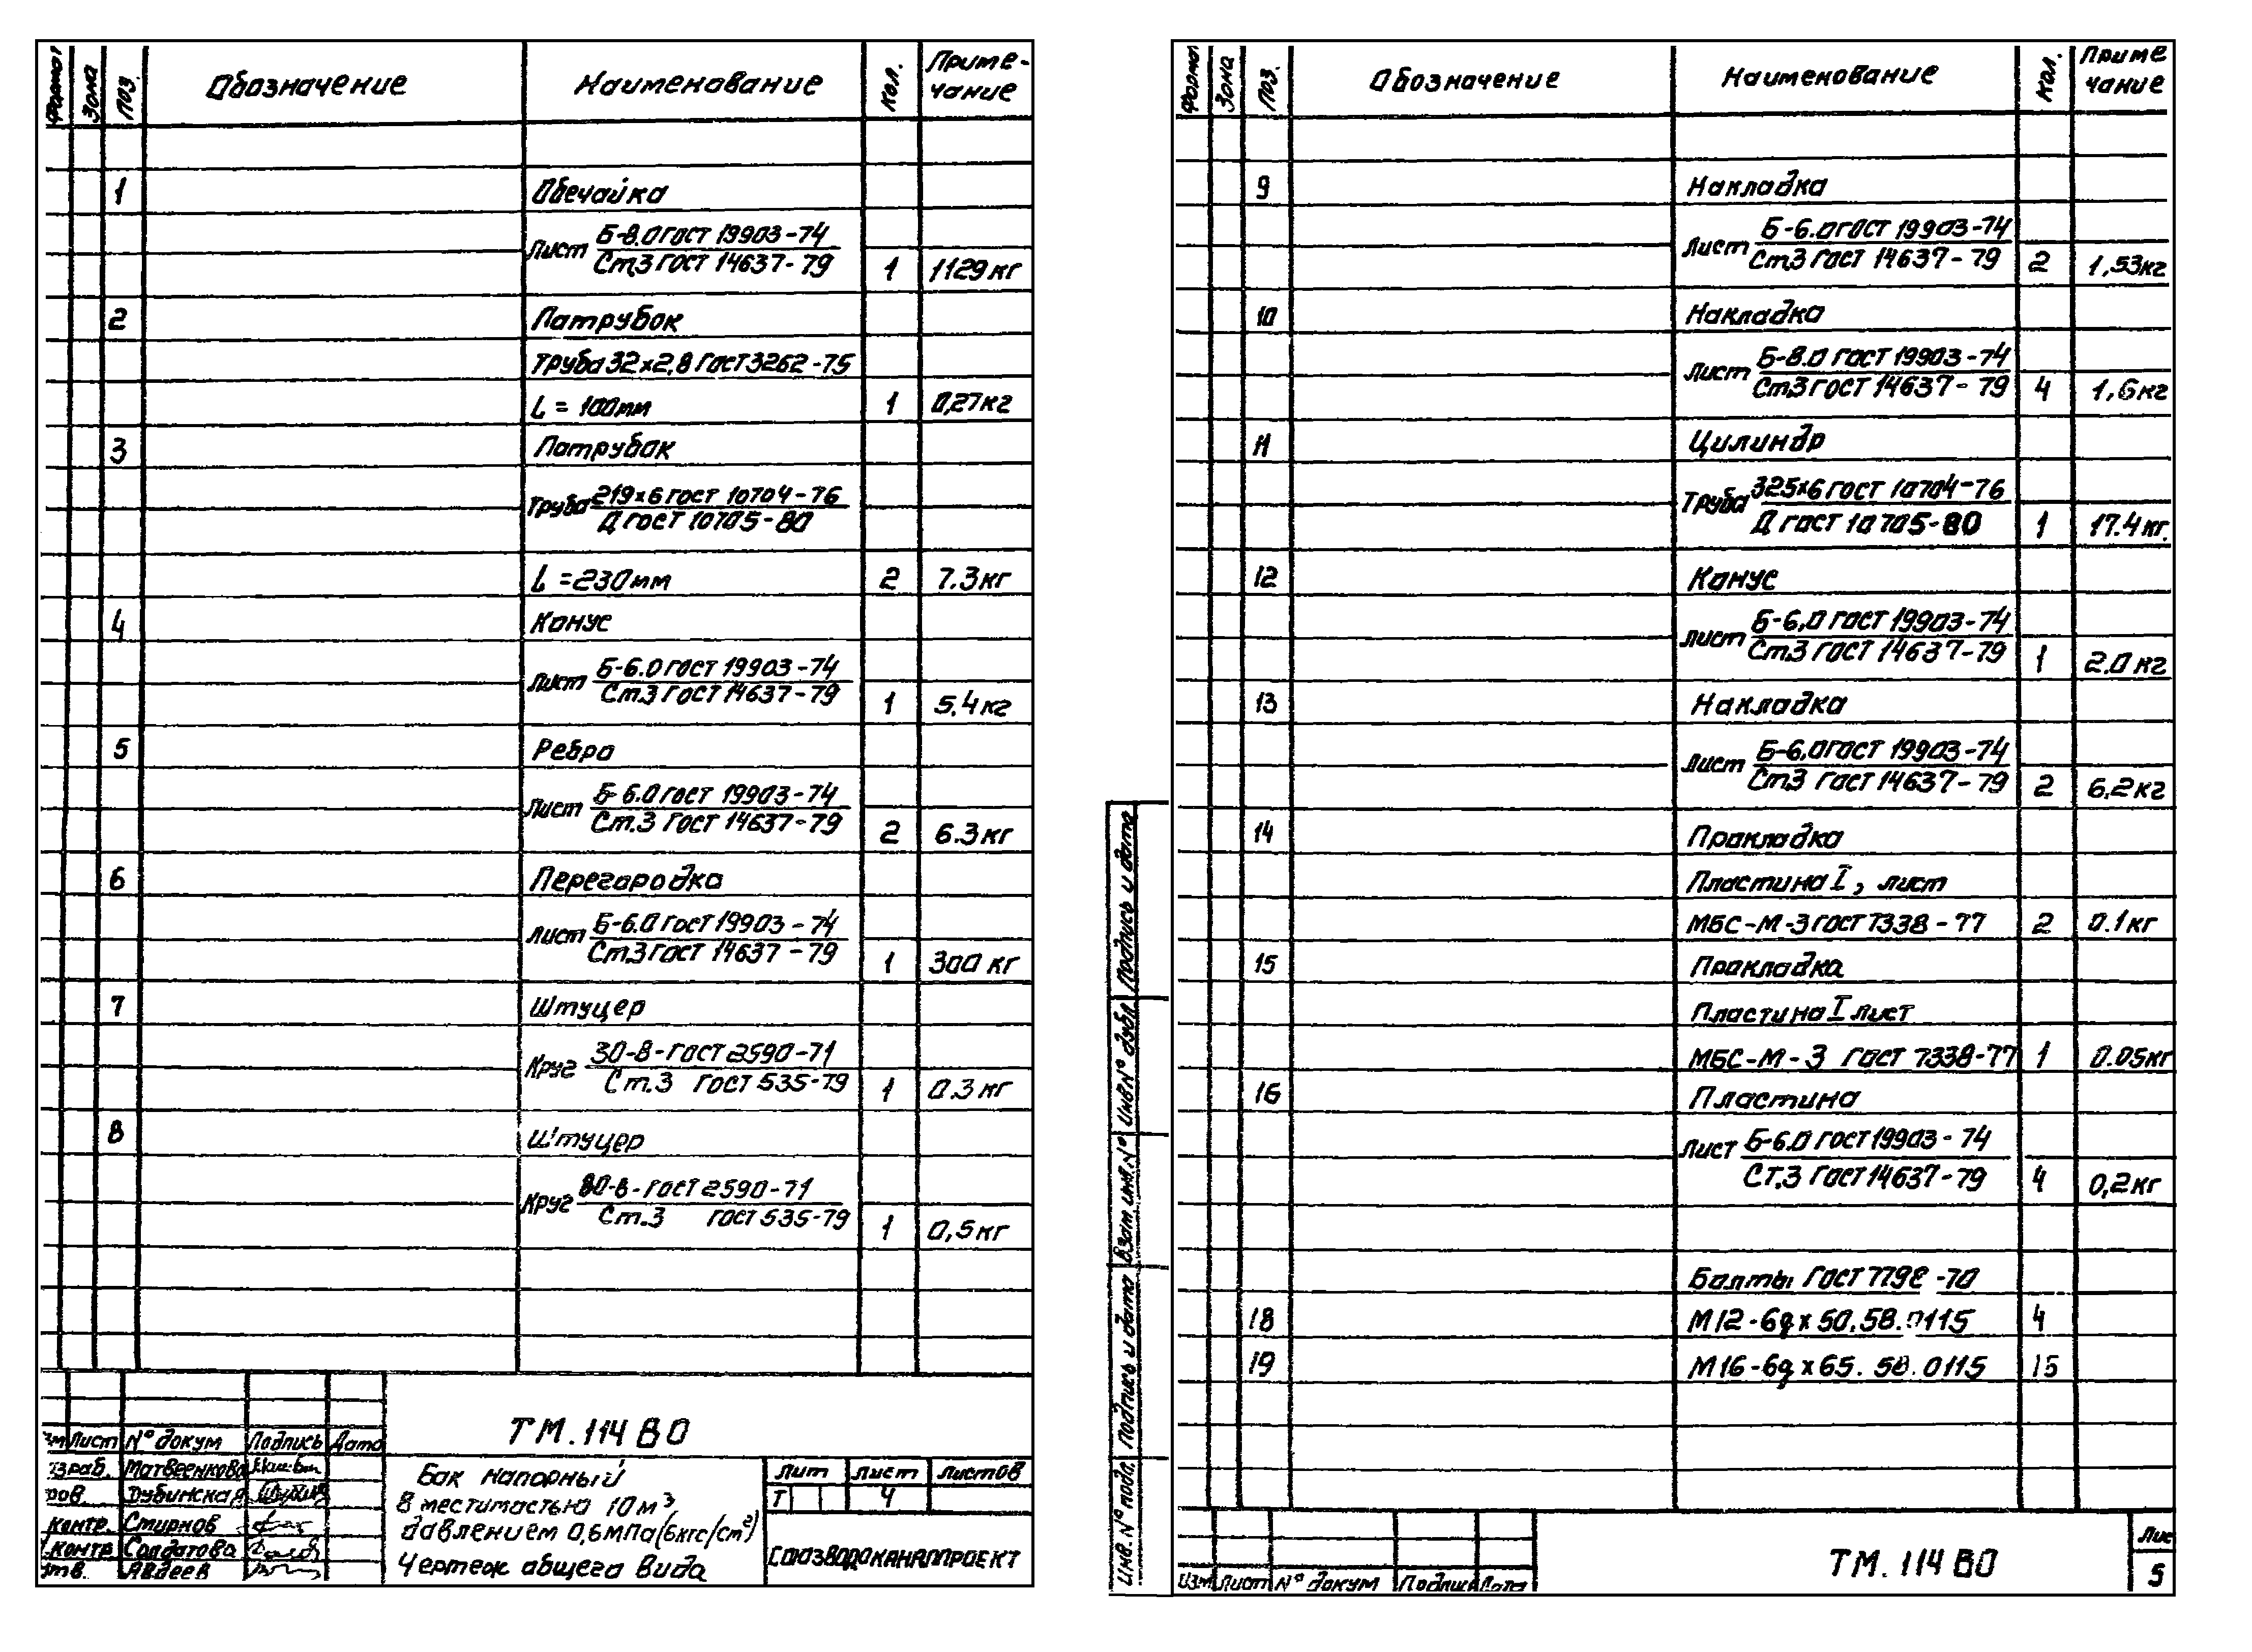 Формат Зона Поз. Обозначение Наименование Кол. Приме-
чание
1 Обечайка
Лист Б-8.0 ГОСТ 19903-74
Ст.3 ГОСТ 14637-79 1 1129кг
2 Патрубок
Труба 32х2,8 ГОСТ 3262-75
L = 100мм 1 0,27кг
3 Патрубок
Труба 219х6 ГОСТ 10704-76
Д ГОСТ 10705-80
L = 230мм 2 7.3кг
4 Конус
Лист Б-6.0 ГОСТ 19903-74
Ст.3 ГОСТ 14637-79 1 5.4кг
5 Ребро
Лист Б-6.0 ГОСТ 19903-74
Ст.3 ГОСТ 14637-79 2 6.3кг
6 Перегородка
Лист Б-6.0 ГОСТ 19903-74
Ст.3 ГОСТ 14637-79 1 300 кг
7 Штуцер
Круг 30-В-ГОСТ 2590-71
Ст.3 ГОСТ 535-79 1 0.3кг
8 Штуцер
Круг 80-В-ГОСТ 2590-71
Ст.3 ГОСТ 535-79 1 0,5кг
ТМ.114 ВО
зм Лист № докум Подпись Дата
азраб. Матвеенкова
ров. Дубинская
контр. Смирнов
контр Солдатова
тв. Авдеев
Бак напорный
вместимостью 10м³,
давлением 0,6МПа (6кгс/см²)
Чертеж общего вида
Лит Лист Листов
Т 4
СОЮЗВОДОКАНАЛПРОЕКТ
Формат Зона Поз. Обозначение Наименование Кол. Приме
чание
9 Накладка
Лист Б-6.0 ГОСТ 19903-74
Ст.3 ГОСТ 14637-79 2 1,53кг
10 Накладка
Лист Б-8.0 ГОСТ 19903-74
Ст.3 ГОСТ 14637-79 4 1,6кг
11 Цилиндр
Труба 325х6 ГОСТ 10704-76
Д ГОСТ 10705-80 1 17.4кг.
12 Конус
Лист Б-6,0 ГОСТ 19903-74
Ст.3 ГОСТ 14637-79 1 2.0кг
13 Накладка
Лист Б-6.0 ГОСТ 19903-74
Ст.3 ГОСТ 14637-79 2 6.2кг
14 Прокладка
Пластина I, лист
МБС-М-3 ГОСТ 7338-77 2 0.1кг
15 Прокладка
Пластина I лист
МБС-М-3 ГОСТ 7338-77 1 0.05кг
16 Пластина
Лист Б-6.0 ГОСТ 19903-74
Ст.3 ГОСТ 14637-79 4 0,2кг
Болты ГОСТ 7798-70
18 М12-6gх50.58.0115 4
19 М16-6gх65.58.0115 16
Инв. № подл. Подпись и дата Взам. инв. № Инв № дубл Подпись и дата
Изм Лист № докум Подпись Дата
ТМ.114 ВО
Лис
5